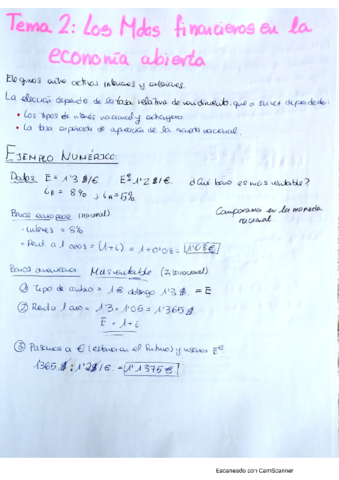 Tema 2: Los Mdos financieros en la
economía abierta
Elegimos entre activos interiores y exteriores.
La elección depende de la tasa relativa de rendimiento, que a su vez depende de:
• Los tipos de interés nacional y extranjero
• La tasa esperada de apreciación de la moneda nacional.
EJEMPLO NUMÉRICO:
Datos E = 1'3 $/€ Eᵉ 1'2 $/€. ¿Qué bono es más rentable?
i_E = 8%, i_A = 5%
Comparamos en la moneda
nacional.
Bonos europeos (nacional)
• Interés = 8%
• Rent. a 1 año = (1+i) = 1+0'08 = 1'08€
Bonos americanos Más rentable
① Tipo de cambio = 1€ obtengo 1'3 $. = E
② Renta 1 año = 1'3 · 1'05 = 1'365 $
E · 1+i
③ Pasamos a € (estamos en el futuro) y usamos Eᵉ
1'365 $ : 1'2 $/€ = 1'1375 €
Escaneado con CamScanner